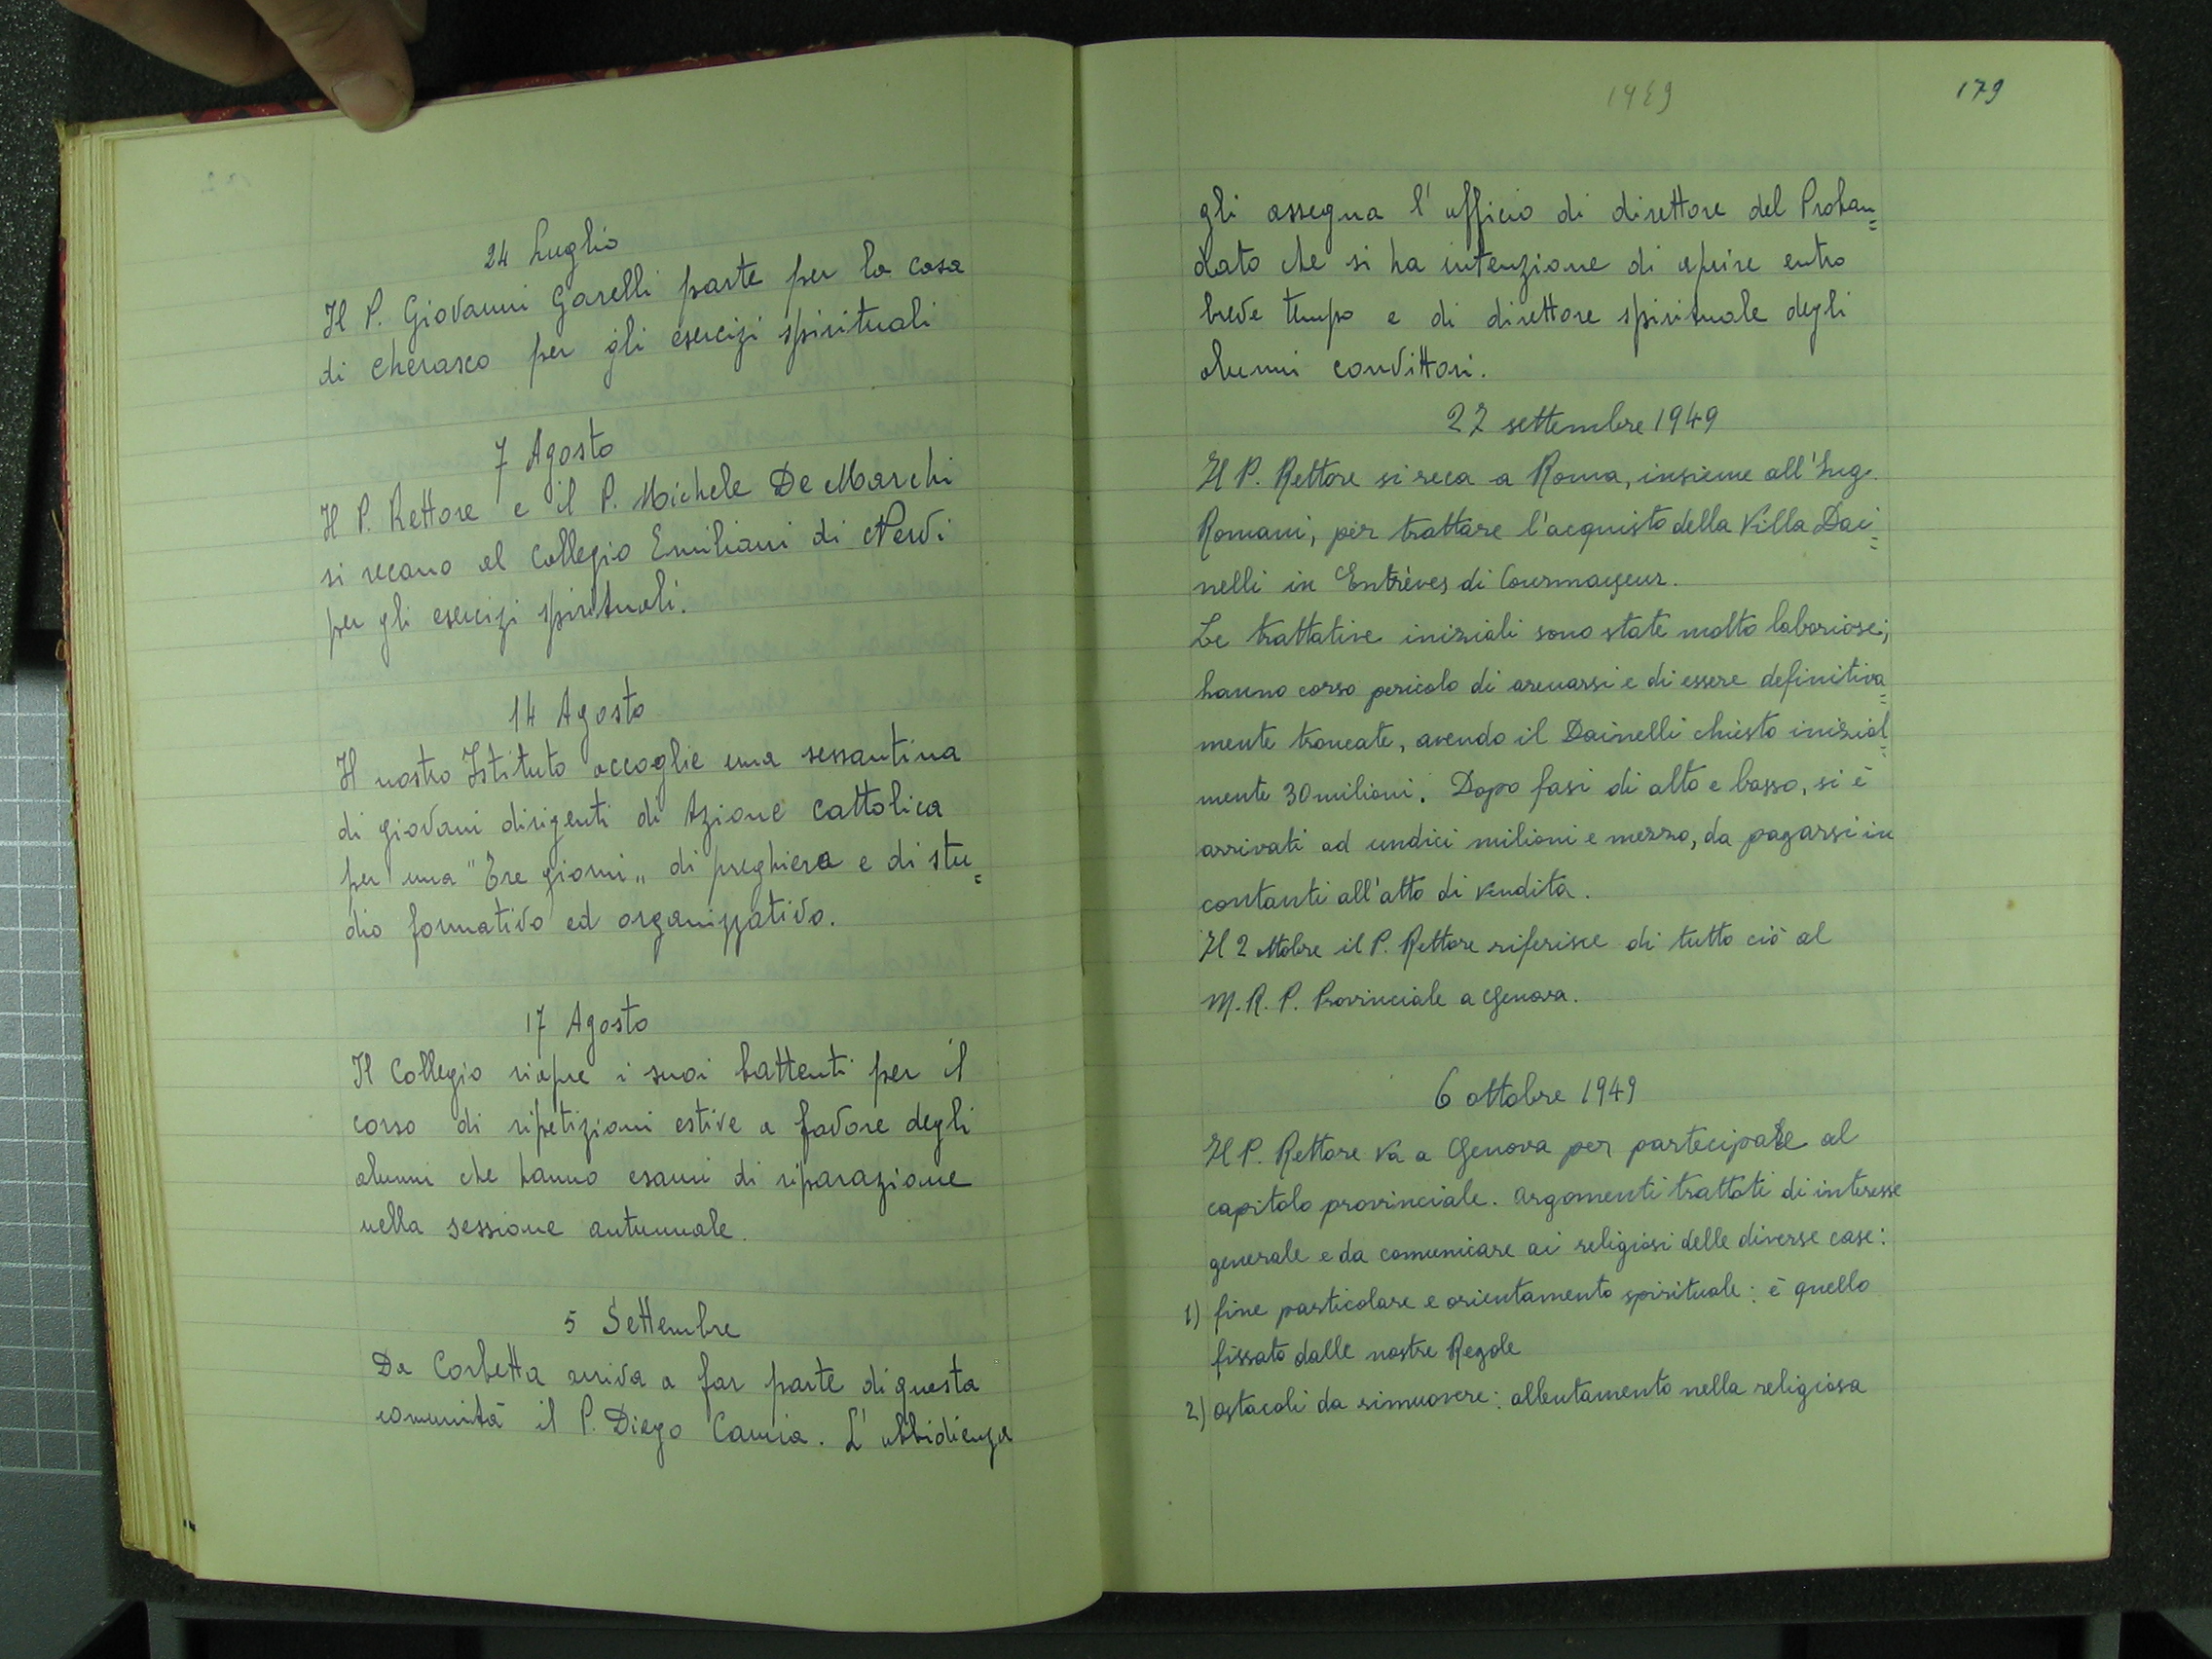 24 Luglio
Il P. Giovanni Garelli parte per la casa
di Cherasco per gli esercizi spirituali
7 Agosto
Il P. Rettore e il P. Michele De Marchi
si recano al Collegio Emiliani di Nervi
per gli esercizi spirituali.
14 Agosto
Il nostro Istituto accoglie una sessantina
di giovani dirigenti di Azione Cattolica
per una "Tre giorni„ di preghiera e di stu=
dio formativo ed organizzativo.
17 Agosto
Il Collegio riapre i suoi battenti per il
corso di ripetizioni estive a favore degli
alunni che hanno esami di riparazione
nella sessione autunnale.
5 Settembre
Da Corbetta arriva a far parte di questa
comunità il P. Diego Camia. L'ubbidienza
1949
179
gli assegna l'ufficio di direttore del Proban=
dato che si ha intenzione di aprire entro
breve tempo e di direttore spirituale degli
alunni convittori.
27 settembre 1949
Il P. Rettore si reca a Roma, insieme all'Ing.
Romani, per trattare l'acquisto della Villa Dai=
nelli in Entrèves di Courmayeur.
Le trattative iniziali sono state molto laboriose;
hanno corso pericolo di arenarsi e di essere definitiva=
mente troncate, avendo il Dainelli chiesto inizial=
mente 30 milioni. Dopo fasi di alto e basso, si è
arrivati ad undici milioni e mezzo, da pagarsi in
contanti all'atto di vendita.
Il 2 ottobre il P. Rettore riferisce di tutto ciò al
M. R. P. Provinciale a Genova.
6 ottobre 1949
Il P. Rettore va a Genova per partecipare al
capitolo provinciale. Argomenti trattati di interesse
generale e da comunicare ai religiosi delle diverse case:
1) fine particolare e orientamento spirituale: è quello
fissato dalle nostre Regole
2) ostacoli da rimuovere: allentamento nella religiosa